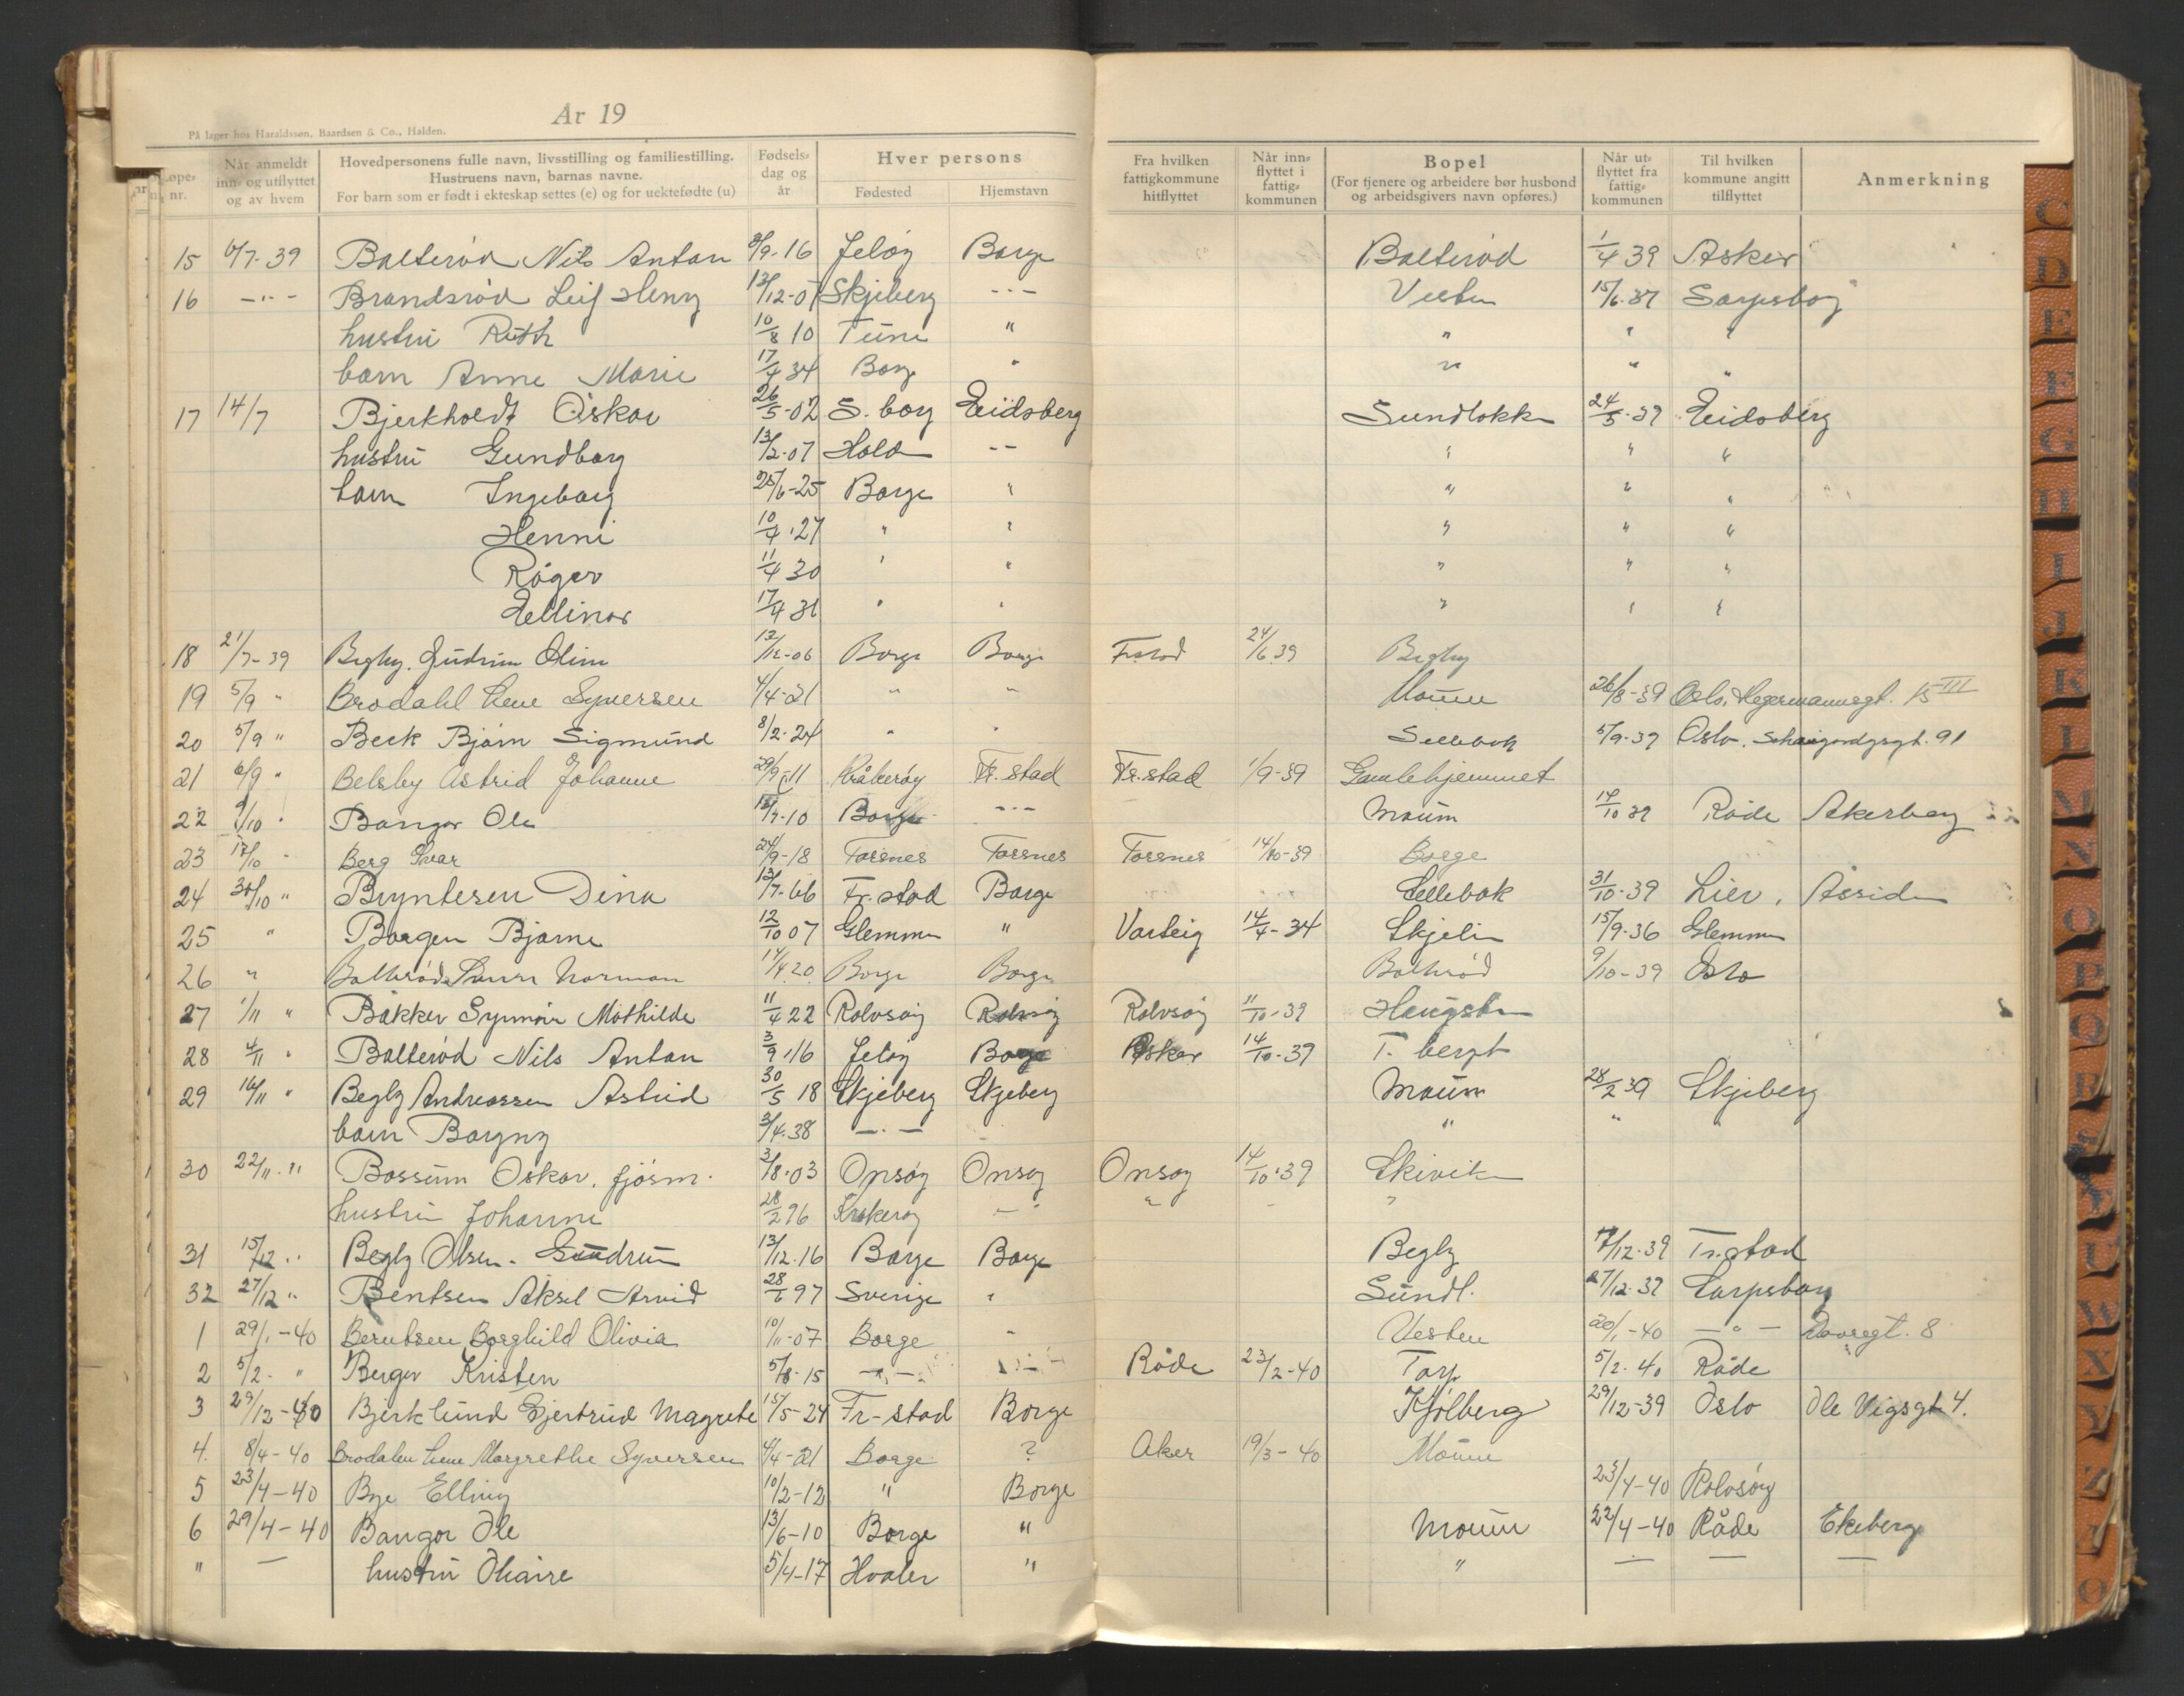 År 19
På lager hos Haraldssøn, Baardsen & Co., Halden.
Løpe-nr. | Når anmeldt inn- og utflyttet og av hvem | Hovedpersonens fulle navn, livsstilling og familiestilling. Hustruens navn, barnas navne. For barn som er født i ekteskap settes (e) og for uektefødte (u) | Fødsels-dag og år | Hver persons Fødested | Hjemstavn | Fra hvilken fattigkommune hitflyttet | Når inn-flyttet i fattig-kommunen | Bopel (For tjenere og arbeidere bør husbond og arbeidsgivers navn opføres.) | Når ut-flyttet fra fattig-kommunen | Til hvilken kommune angitt tilflyttet | Anmerkning
15 6/7-39 Balterød Nils Anton 3/9-16 Jeløy Borge Balterød 1/4 39 Asker
16 -"- Brandsrød Leif Henry 13/12-07 Skjeberg -"- Vesten 15/6-37 Sarpsborg
hustru Ruth 10/8 10 Tune " " " "
barn Anne Marie 17/4 34 Borge " " " "
17 14/7 Bjerkholdt Oskar 26/5-02 S.borg Eidsberg Sundløkka 24/5-39 Eidsberg
hustru Gundborg 13/2-07 Holø -- " " "
barn Ingeborg 25/6-25 Borge " " " "
Henni 10/4-27 " " " " "
Roger 11/4 30 " " " " "
Ellinor 17/4 31 " " " " "
18 21/7-39 Begby, Gudrun Oline 13/12-06 Borge Borge Frstad 24/6 39 Begby
19 5/9 " Brodahl Lene Syversen 4/4-21 " " Moum 26/8-39 Oslo, Hegermannsgt. 15 III
20 5/9 " Beck Bjørn Sigmund 8/2-24 " " Sellebak 5/9-39 Oslo, Schweigaardsgt. 91
21 6/9 " Belsby Astrid Johanne 29/9-11 Kråkerøy Fr.stad Fr.stad 1/9-39 Gamlehjemmet
22 9/10 " Bangor Ole 13/7-10 Borge -"- Moum 14/10 39 Råde Akerberg
23 17/10 " Berg Ivar 24/9-18 Torsnes Torsnes Torsnes 14/10-39 Borge
24 30/10 " Bryntesen Dina 13/7-66 Fr.stad Borge Sellebak 31/10-39 Lier, Åssiden
25 " Borgen Bjarne 12/10 07 Glemmen " Varteig 14/4-34 Skjelin 15/9-36 Glemmen
26 " Balterød Norman 14/4 20 Borge Borge Balterød 9/10-39 Oslo
27 1/11 " Bakker Synnøve Mathilde 11/4 22 Rolvsøy Rolvsøy Rolvsøy 11/10-39 Haugsten
28 4/11 " Balterød Nils Anton 3/9-16 Jeløy Borge Asker 14/10-39 T. bergt
29 16/11 " Begby Andreassen Astrid 30/5 18 Skjeberg Skjeberg Moum 28/2 39 Skjeberg
barn Borgny 3/4-38 -"- " "
30 22/11 " Bossum Oskar, fjøsm. 3/8-03 Onsøy Onsøy Onsøy 14/10-39 Skivik
hustru Johanne 28/2 96 Kråkerøy - " " - "
31 15/12 " Begby Olsen - Gudrun 13/12-16 Borge Borge Begby 7/12-39 Fr.stad
32 27/12 " Bentsen Aksel Arvid 28/6 97 Sverige " Sundl. 27/12-39 Sarpsborg
1 29/1-40 Berntsen Borghild Olivia 10/11-07 Borge " Vesten 20/1-40 -"- Dovregt. 8
2 5/2- " Berger Kristen 5/8-15 -"- -"- Råde 23/2-40 Torp 5/2-40 Råde
3 29/12-40 Bjerklund Gjertrud Magrete 15/5-24 Fr-stad Borge Kjølberg 29/12-39 Oslo Ole Vigsgt 4.
4. 8/4-40 Brodalen Lene Margrethe Syversen 4/4-21 Borge ? Aker 19/3-40 Moum
5 23/4-40 Bye Elling 10/2-12 " Borge 23/4-40 Rolvsøy
6 29/4-40 Bangor Ole 13/6-10 Borge " Moum 22/4-40 Råde Ekeberg
" — hustru 5/4-17 Hvaler " " — — —